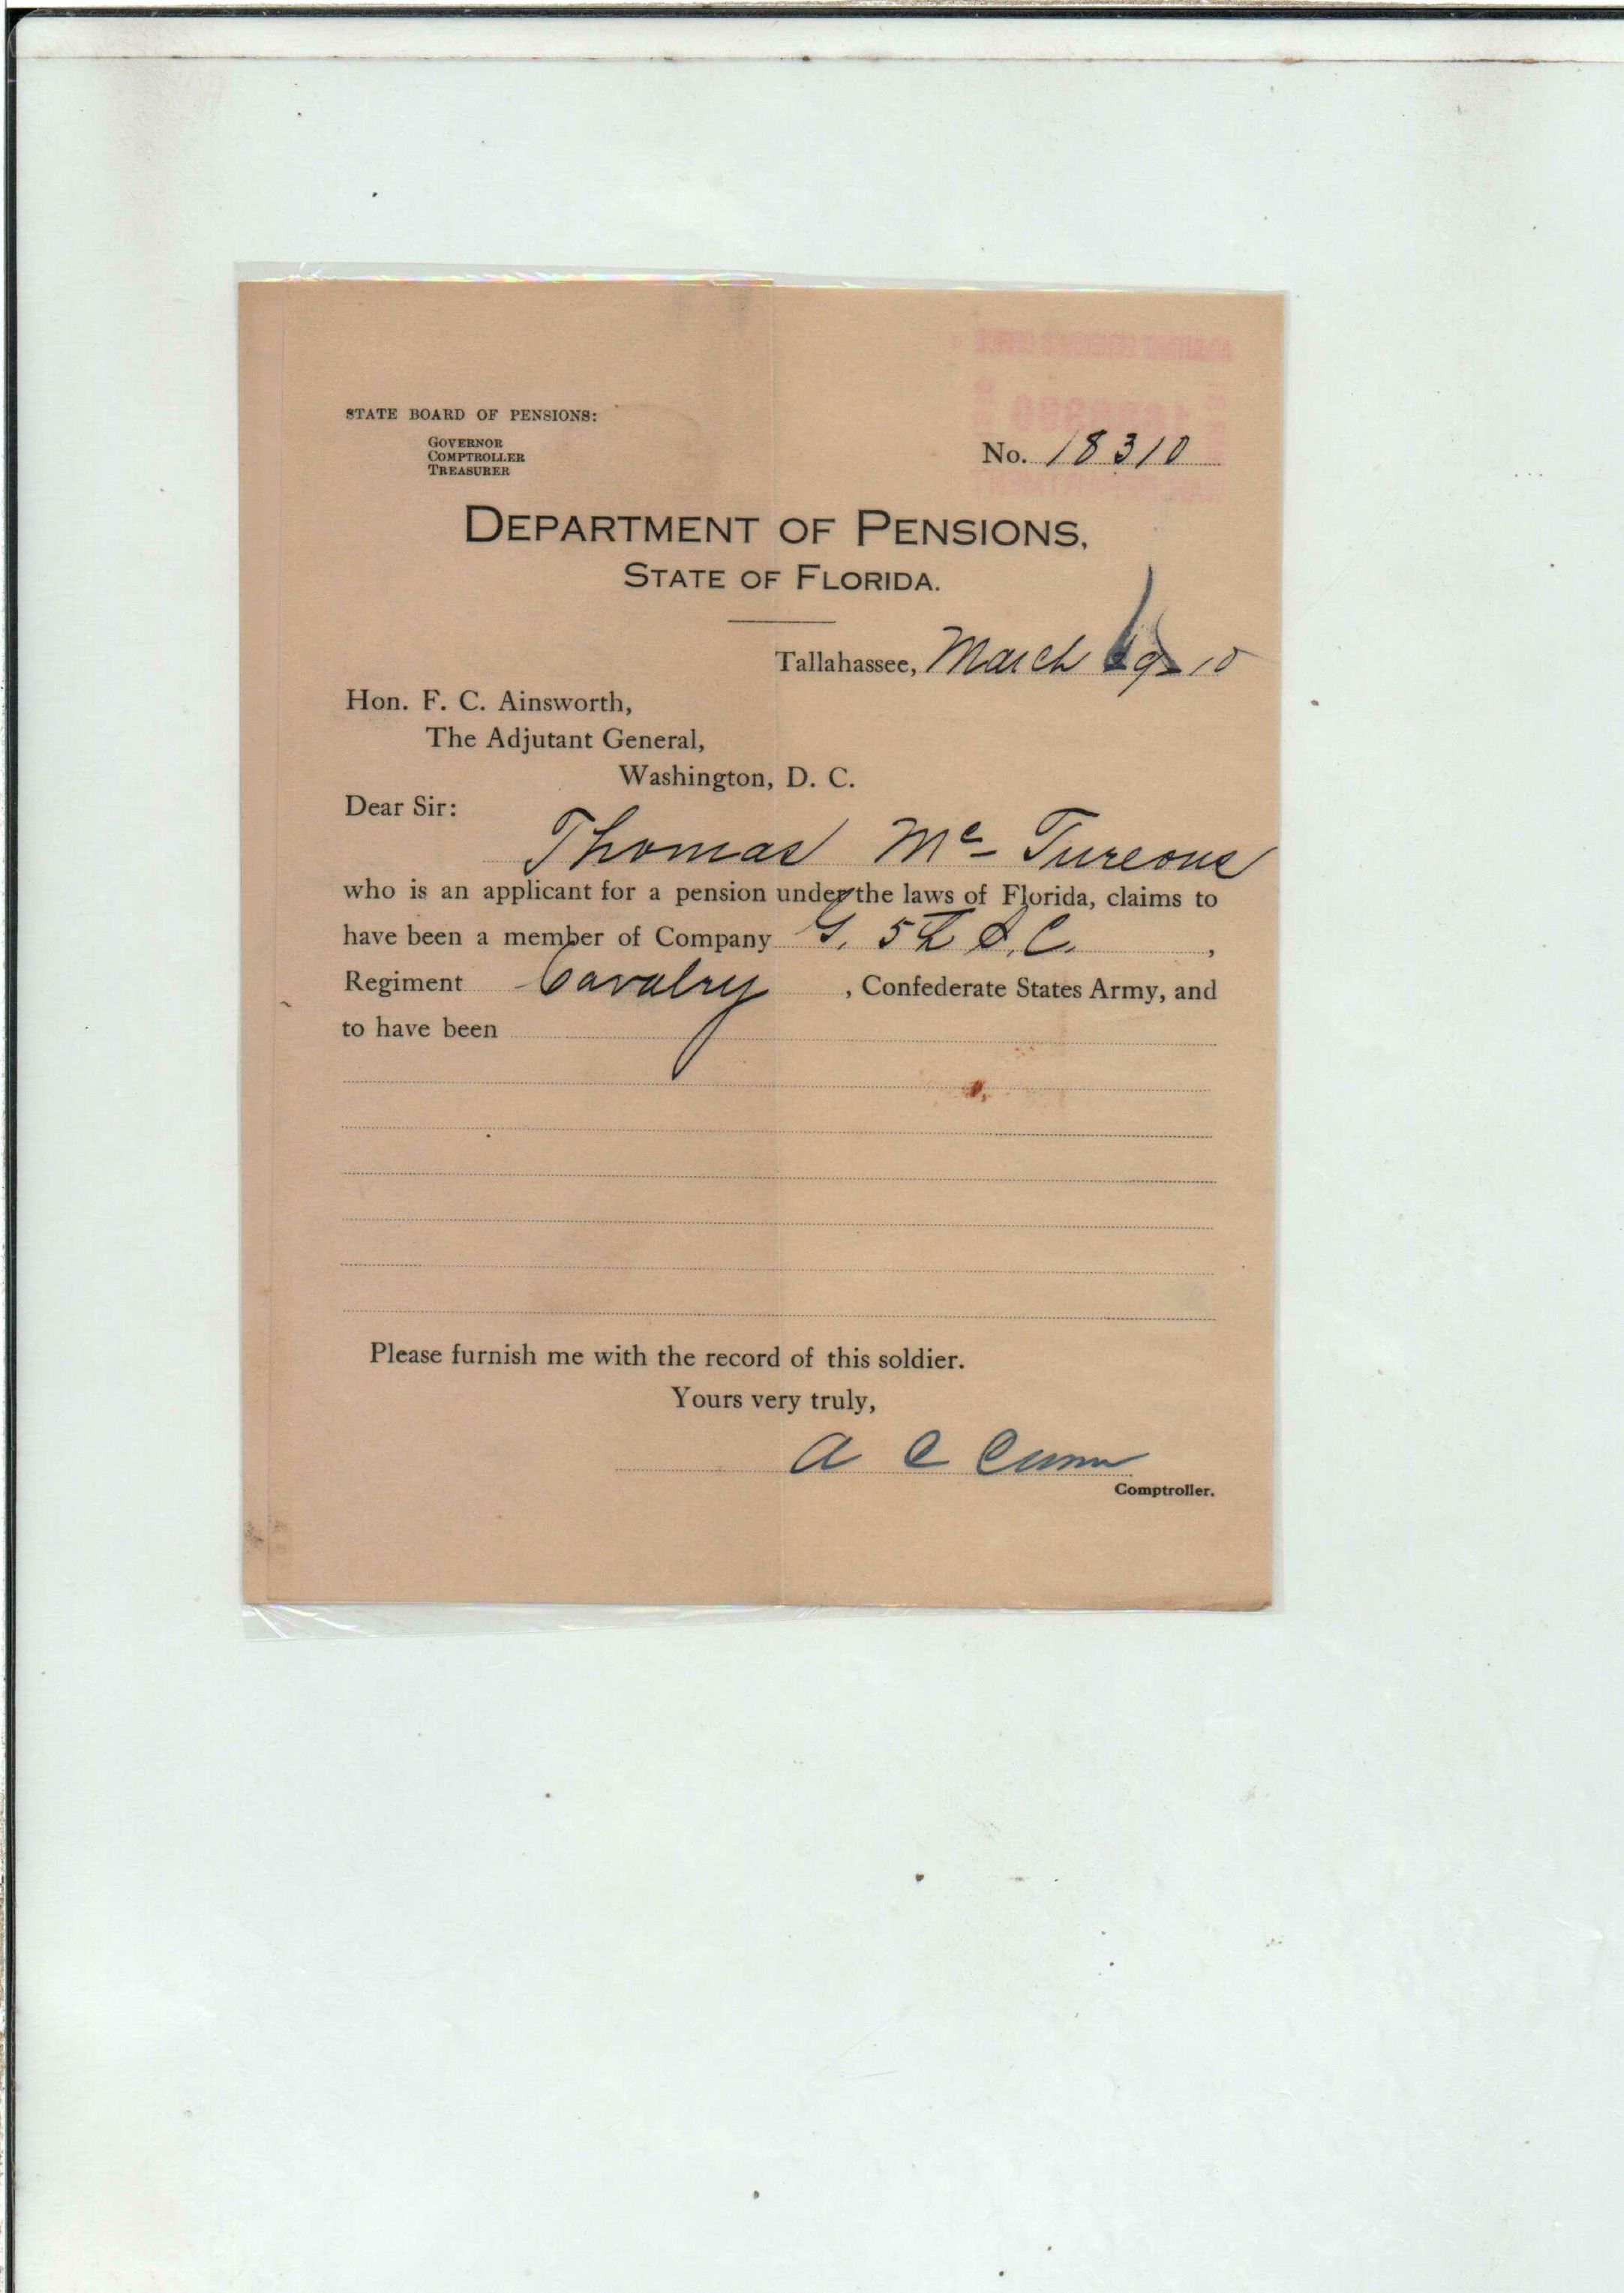 STATE BOARD OF PENSIONS:
GOVERNOR
COMPTROLLER
TREASURER
No. 18310
DEPARTMENT OF PENSIONS,
STATE OF FLORIDA.
Tallahassee, March 10
Hon. F. C. Ainsworth,
The Adjutant General,
Washington, D. C.
Dear Sir:
Thomas Mc-Tureous
who is an applicant for a pension under the laws of Florida, claims to
have been a member of Company G. 5th S.C. ,
Regiment Cavalry , Confederate States Army, and
to have been
Please furnish me with the record of this soldier.
Yours very truly,
A C Croom
Comptroller.